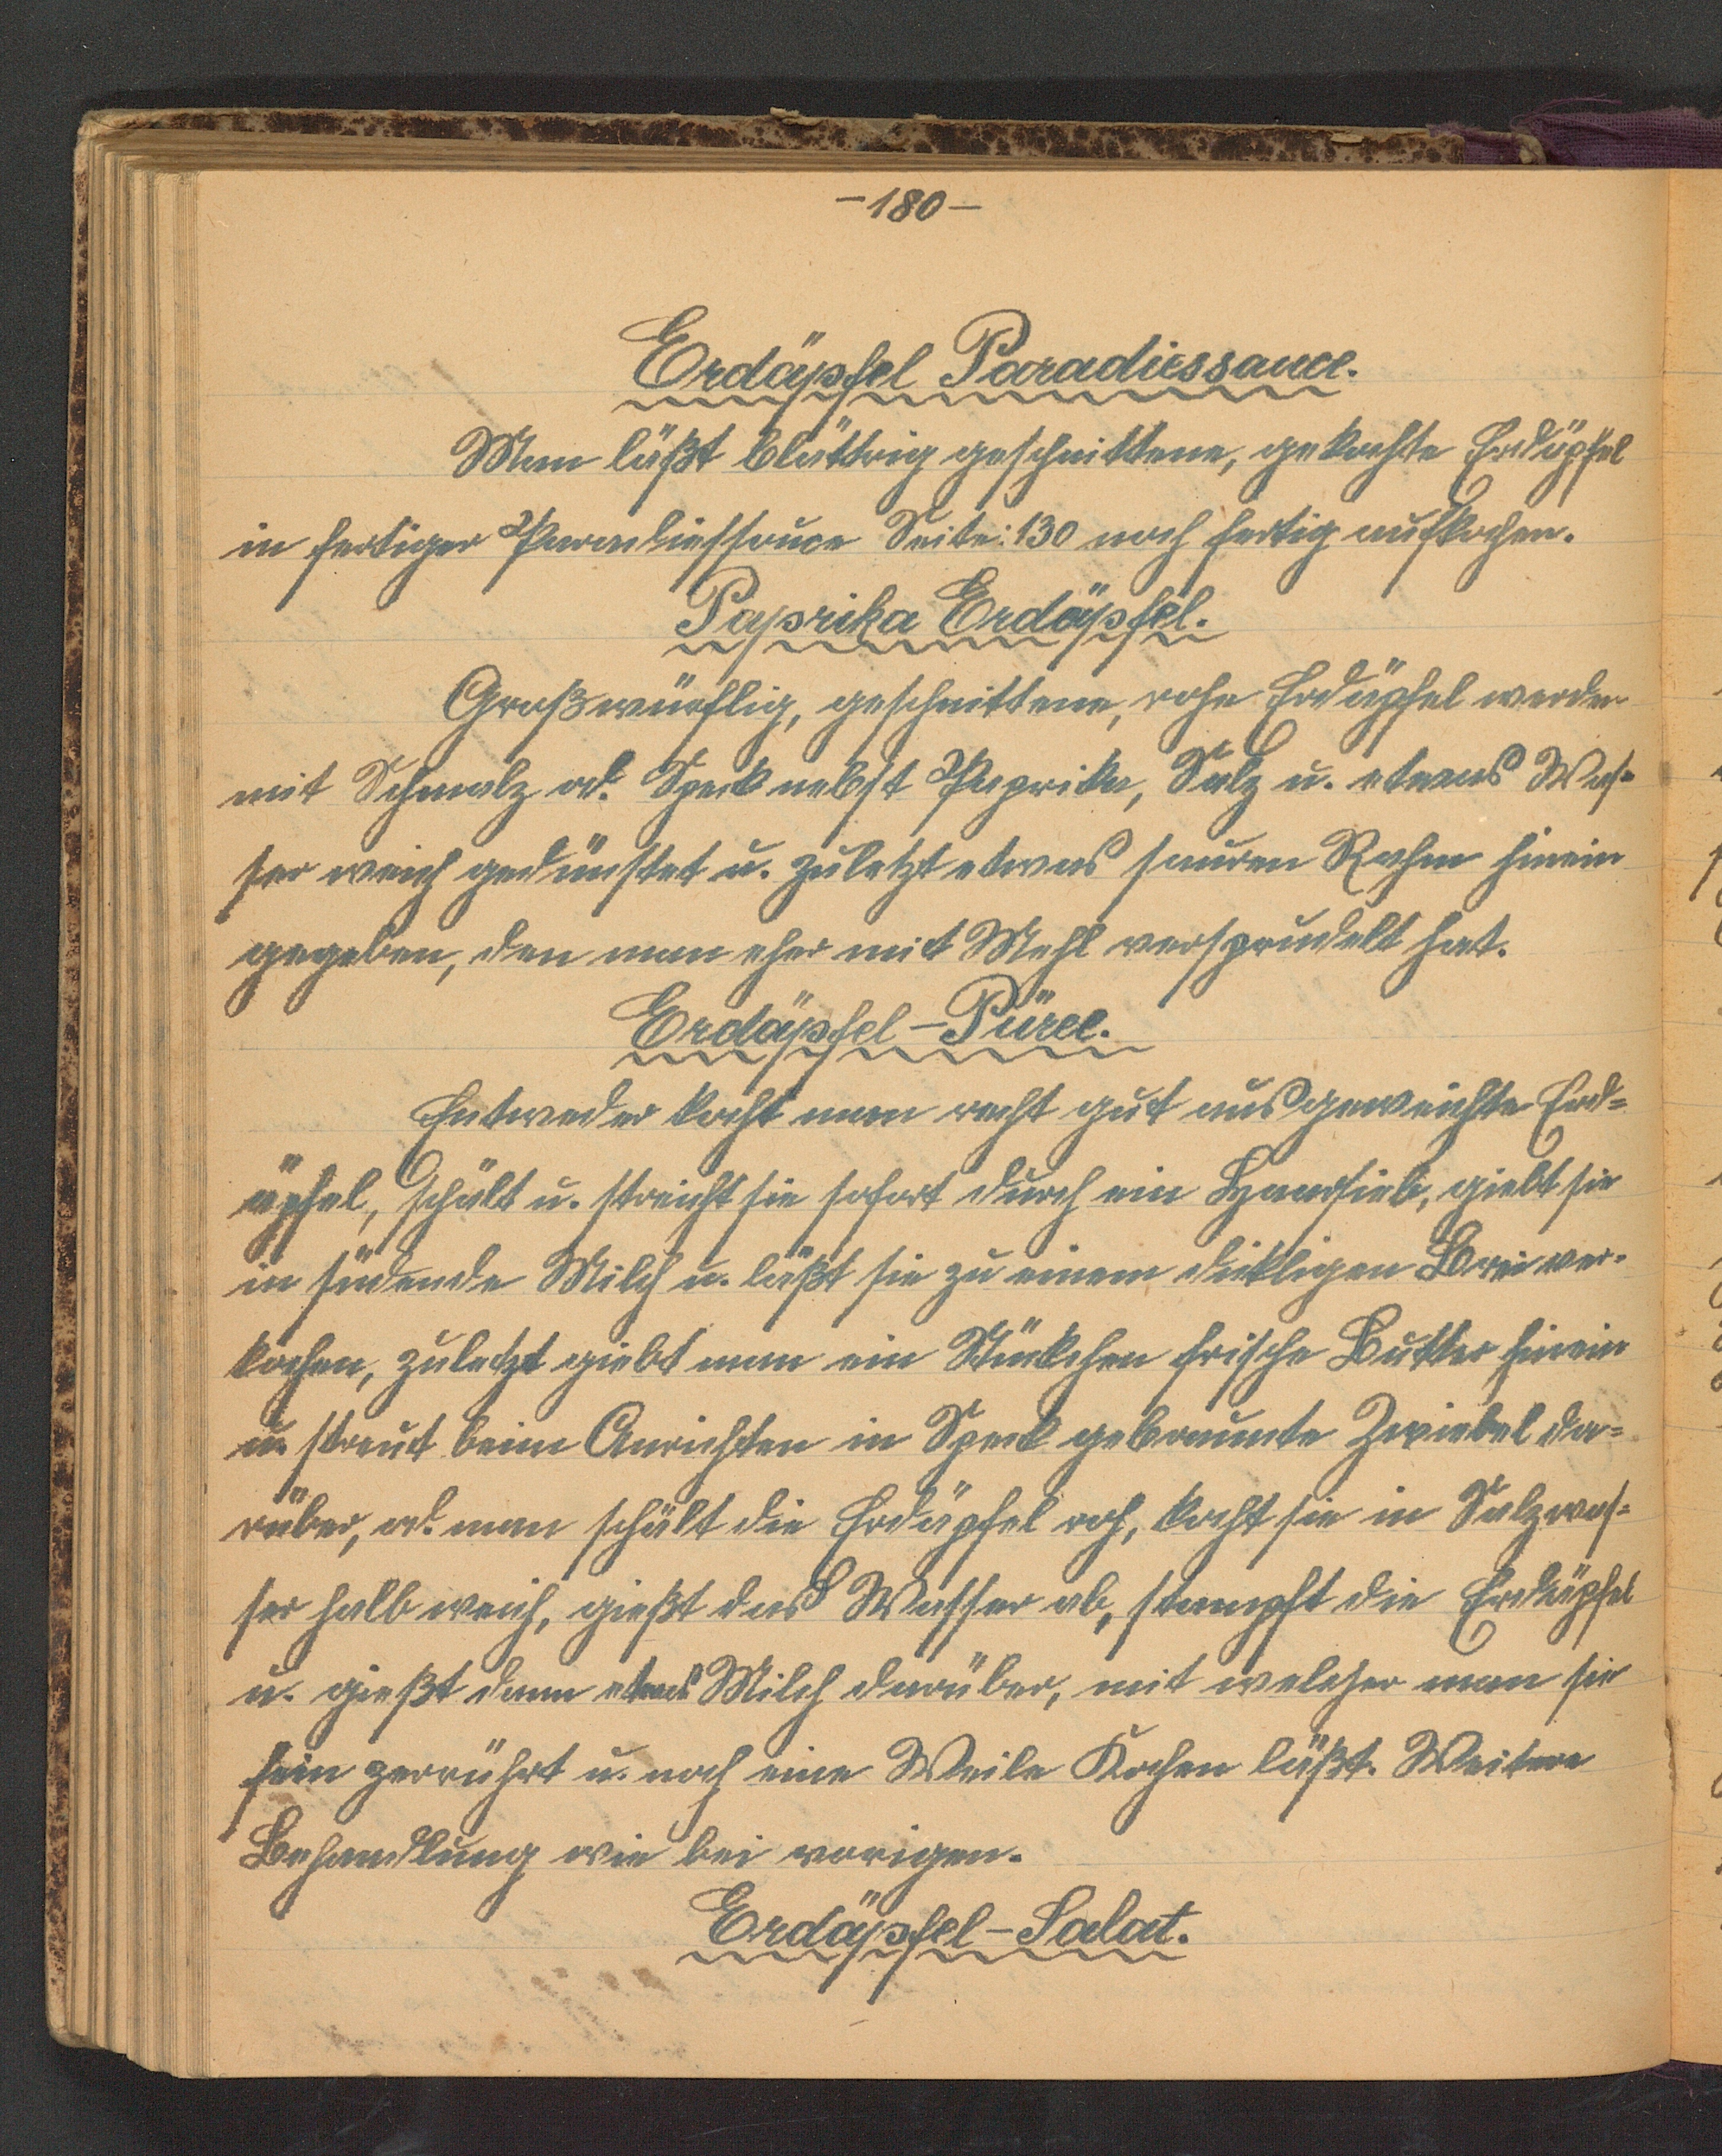 -180-
Erdäpfel Paradiessauce.
Man läßt blättrig geschnittene, gekochte Erdäpfel
in fertiger Paradiessauce Seite: 130 noch fertig aufkochen.
Paprika Erdäpfel.
Großwürflig, geschnittene, rohe Erdäpfel werden
mit Schmalz od. Speck nebst Paprika, Salz u. etwas Was-
ser weich gedünstet u. zuletzt etwas sauren Rahm hinein
gegeben, den man eher mit Mehl versprudelt hat.
Erdäpfel-Püree.
Entweder kocht man recht gut ausgeweichte Erd=
äpfel, schält u. streicht sie sofort durch ein Haarsieb, giebt sie
in südende Milch u. läßt sie zu einem dickligen Brei ver-
kochen, zuletzt giebt man ein Stückchen frische Butter hinein
u. streut beim Anrichten in Speck gebraunte Zwiebel da=
rüber, od. man schält die Erdäpfel roh, kocht sie in Salzwas=
ser halb weich, gießt das Wasser ab, stampft die Erdäpfel
u. gießt dann etwas Milch darüber, mit welcher man sie
fein zerrührt u. noch eine Weile Kochen läßt. Weitere
Behandlung wie bei vorigen.
Erdäpfel-Salat.